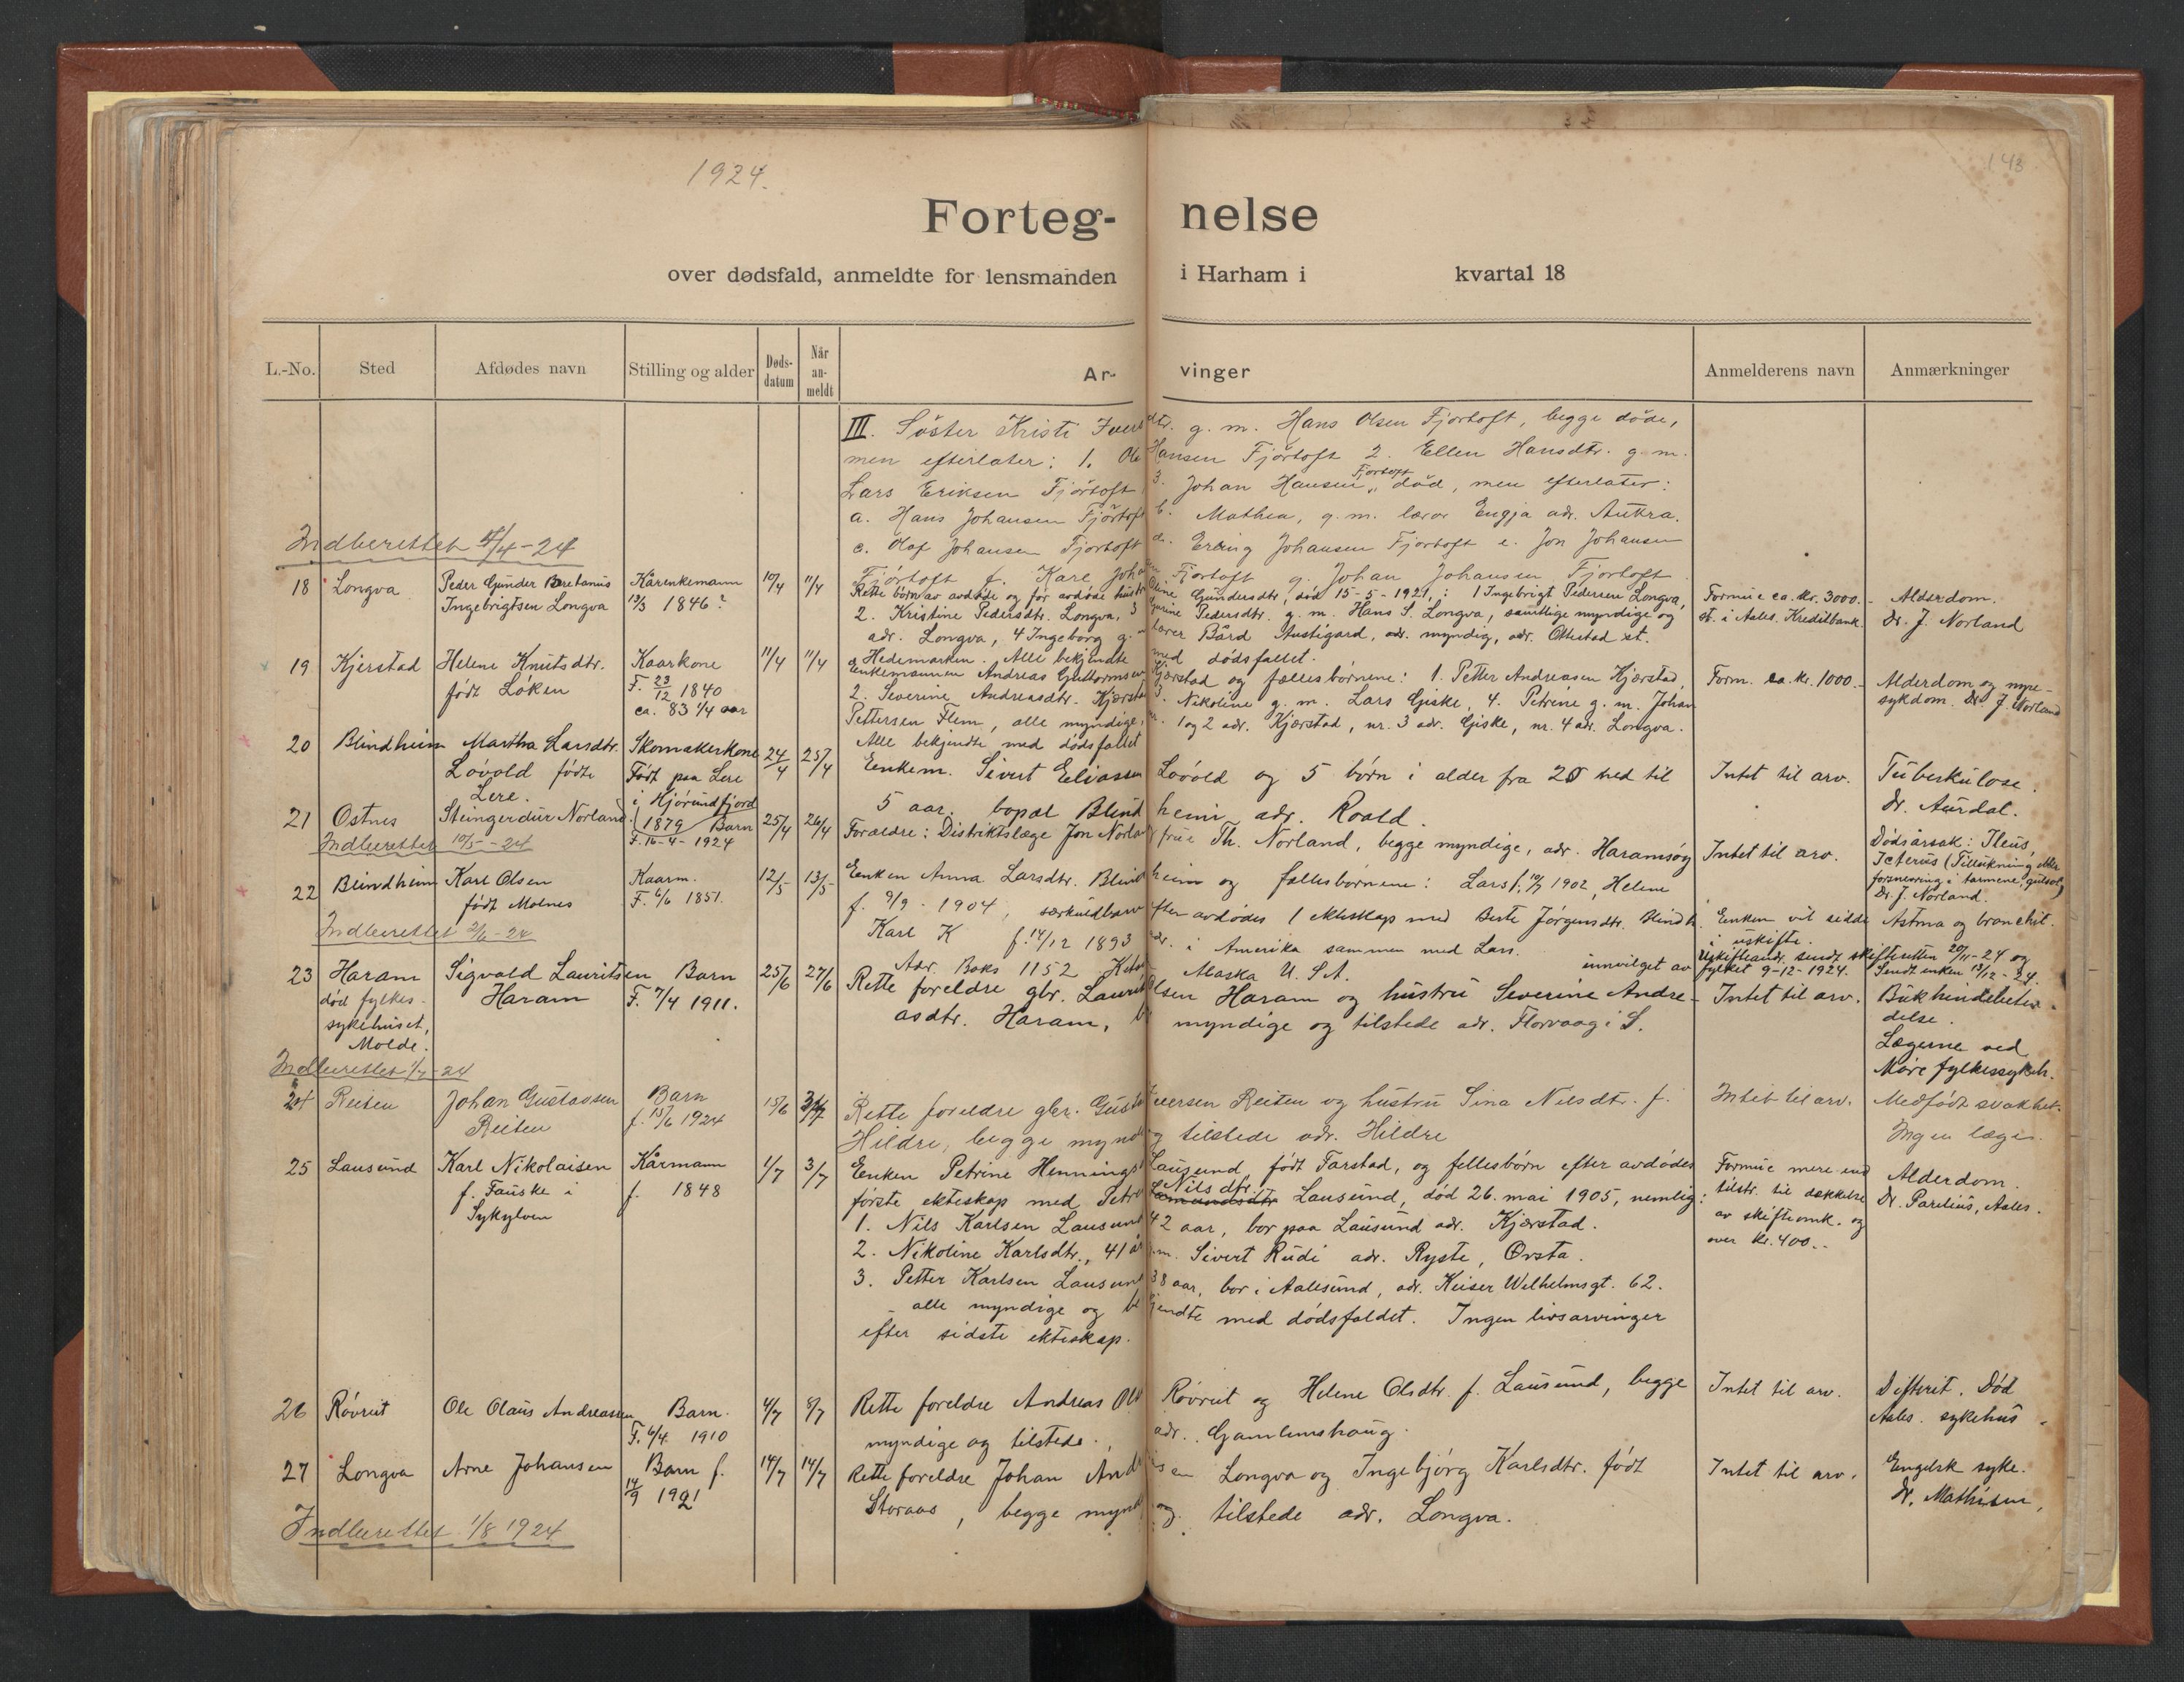 1924.
143
Forteg- nelse
over dødsfald, anmeldte for lensmanden i Harham i kvartal 18
L.-No. Sted Afdødes navn Stilling og alder Døds-datum Når an-meldt Ar- vinger Anmelderens navn Anmærkninger
III. Söster Kristi Iversdtr. g. m. Hans Olsen Fjørtoft, begge döde,
men efterlater: 1. Ole Hansen Fjørtoft 2. Ellen Hansdtr. g. m.
Lars Eriksen Fjørtoft 3. Johan Hansen Fjørtoft, död, men efterlater:
a. Hans Johansen Fjørtoft b. Mathea, g. m. lærer Engja adr. Aukra.
c. Olaf Johansen Fjørtoft d. Erling Johansen Fjørtoft e. Jon Johansen
Fjørtoft f. Kare Fjørtoft g. Johan Johansen Fjørtoft
Indberettet 4/4-24
18 Longva Peder Gunder Ingebrigtsen Longva Kårenkemann 13/3 1846? 10/4 11/4
Rette børn av avdøde og før avdøde hustru Gundersdtr, død 15-5-1921, : 1 Ingebrigt Pedersen Longva,
2. Kristine Pedersdtr. Longva, 3 Pedersdtr. g. m. Hans S. Longva, samtlige myndige og
adr. Longva, 4 Ingeborg g. m. lærer Bård Austigard, adr. myndig, adr. Ottestad st.
Hedemarken. Alle bekjendte med dödsfallet.
Formue ca. kr. 3000.- st. i Aales. Kreditbank.
Alderdom.
Dr. J. Norland
19 Kjerstad Helene Knutsdtr. født Löken Kaarkone F. 23/12 1840 ca. 83 1/4 aar 11/4 11/4
Enkemannen Andreas Guttormsen Kjærstad og fællesbørnene: 1. Petter Andreasen Kjærstad,
2. Severine Andreasdtr. Kjærstad 3. Nikoline g. m. Lars Giske, 4. Petrine g. m. Johan
Pettersen Flem, alle myndige, nr. 1 og 2 adr. Kjærstad, nr. 3 adr. Giske, nr. 4 adr. Longva.
Alle bekjendte med dödsfallet
Form. ca. kr. 1000.-
Alderdom og nyre-
sykdom. Dr. J. Norland
20 Blindheim Martha Larsdtr. Lövold födte Lere. Skomakerkone Født paa Lere i Hjörundfjord 1879 24/4 25/4
Enkem. Sivert Eliassen Lövold og 5 børn i alder fra 20 ned til
5 aar. bopæl Blindheim adr. Roald.
Intet til arv.
Tuberkulose.
Dr. Aurdal.
21 Östnes Steingerdur Norland Barn F. 16-4-1924 25/4 26/4
Forældre: Distriktslæge Jon Norland frue Th. Norland, begge myndige, adr. Haramsøy
Intet til arv.
Dødsårsak: Ileus,
Icterus (Tillukning eller
forsnevring i tarmene, gulsot)
Dr. J. Norland.
Indberettet 10/5-24
22 Blindheim Karl Olsen født Molnes Kaarm. F. 6/6 1851. 12/5 13/5
Enken Anna Larsdtr. Blindheim og fællesbørnene: Lars f. 10/7 1902, Helene
f. 9/9 - 1904, særkuldbarn efter avdødes 1 ekteskap med Berte Jørgensdtr. Blindh.
Karl K f. 14/12 1893 adr. i Amerika sammen med Lars.
Adr. Boks 1152 Alaska U. S. A.
Enken vil sidde i uskifte.
Uskifteandr. sendt skifteretten 20/11-24 og
innvilget av fylket 9-12-1924. Sendt enken 13/12-24.
Astma og bronchit.
Indberettet 2/6-24
23 Haram Sigvald Lauritsen Haram Barn F. 7/4 1911. 25/6 27/6
død fylkes-
sykehuset,
Molde.
Rette foreldre gbr. Laurits Olsen Haram og hustru Severine Andre-
asdtr. Haram, myndige og tilstede adr. Flørvaag i S.
Intet til arv.
Bukhindebeten-
delse.
Lægerne ved
Möre fylkessykeh.
Indberettet 1/7-24
24 Reiten Johan Gustavsen Reiten Barn f. 15/6 1924 15/6 3/7
Rette foreldre gbr. Reiten og hustru Sina Nilsdtr. f.
Hildre, begge myndig tilstede adr. Hildre
Intet til arv.
Medfødt svakhet.
Ingen læge.
25 Lausund Karl Nikolaisen f. Fauske i Sykylven Kårmann f. 1848 1/7 3/7
Enken Petrine Lausund, født Farstad, og fellesbörn efter avdødes
første ekteskap med Nilsdtr. Lausund, död 26. mai 1905, nemlig:
1. Nils Karlsen Lausund 42 aar, bor paa Lausund adr. Kjærstad.
2. Nikoline Karlsdtr., 41 år g.m. Sivert Rudi adr. Ryste, Ørsta.
3. Petter Karlsen Lausund 38 aar, bor i Aalesund, adr. Keiser Wilhelmsgt. 62.
- alle myndige og bekjendte med dödsfaldet. Ingen livsarvinger
efter sidste ekteskap.
Formue mere end
tilstr. til dækkelse
av skifteomk. og
over kr. 400.-
Alderdom.
Dr. Parelius, Aales.
26 Rövreit Ole Olaus Andreassen Barn. F. 6/4 1910 4/7 8/7
Rette foreldre Andreas Rövreit og Helene Olsdtr. f. Lausund, begge
myndige og tilstede. adr. Gamlemshaug.
Intet til arv.
Difterit. Død
Aales. sykehus.
27 Longva Arne Johansen Barn f. 14/9 1921 14/7 14/7
Rette foreldre Johan Longva og Ingebjörg Karlsdtr. født
Storaas, begge mynd. og tilstede adr. Longva.
Intet til arv.
Engelsk syke.
Dr. Mathisen,
Indberettet 1/8 1924